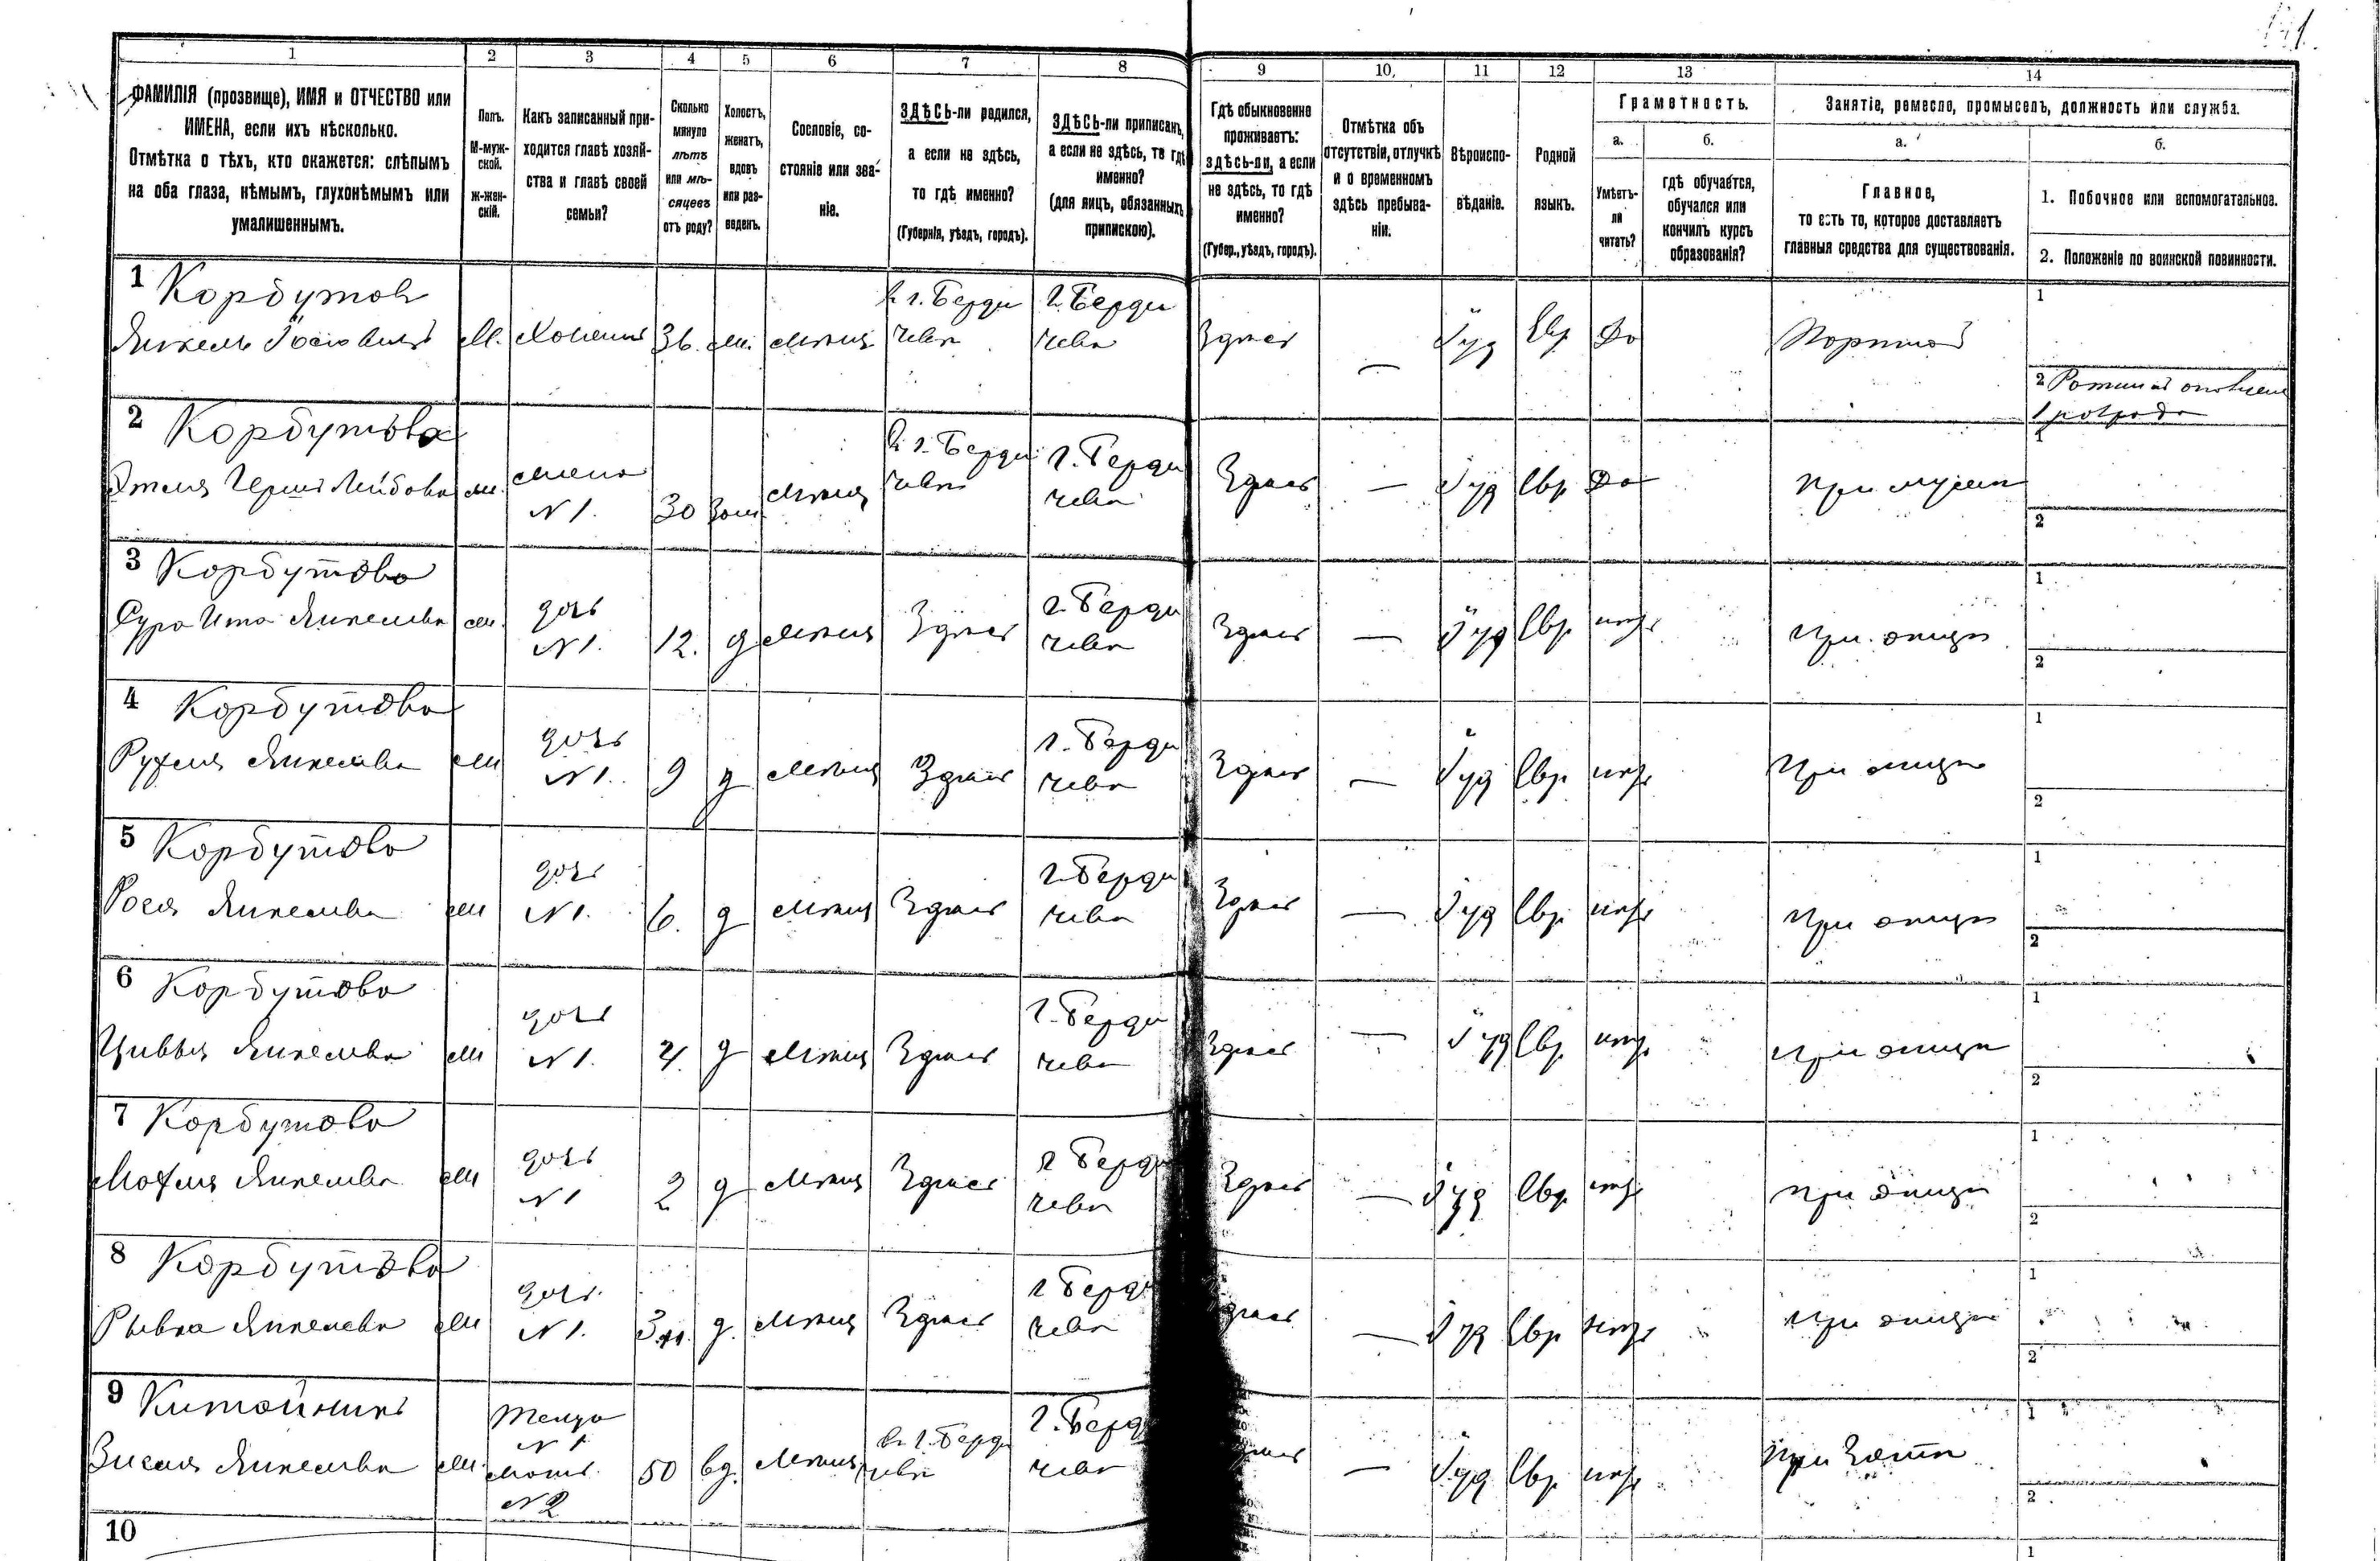 1
2
3
4
5
6
7
8
9
10.
11
12
13
14
ФАМИЛІЯ (прозвище), ИМЯ и ОТЧЕСТВО или
ИМЕНА, если ихъ нѣсколько.
Отмѣтка о тѣхъ, кто окажется: слѣпымъ
на оба глаза, нѣмымъ, глухонѣмымъ или
умалишеннымъ.
Полъ.
М-муж-
ской.
Ж-жен-
скій.
Какъ записанный при-
ходится главѣ хозяй-
ства и главѣ своей
семьи?
Сколько
минуло
лѣтъ
или мѣ-
сяцевъ
отъ роду?
Холостъ,
женатъ,
вдовъ
или раз-
веденъ.
Сословіе, со-
стояніе или зва-
ніе.
ЗДѢСЬ-ли родился,
а если не здѣсь,
то гдѣ именно?
(Губернія, уѣздъ, городъ).
ЗДѢСЬ-ли приписанъ,
а если не здѣсь, то гдѣ
именно?
(для лицъ, обязанныхъ
припискою).
Гдѣ обыкновенно
проживаетъ:
здѣсь-ли, а если
не здѣсь, то гдѣ
именно?
(Губер., уѣздъ, городъ).
Отмѣтка объ
отсутствіи, отлучкѣ
и о временномъ
здѣсь пребыва-
ніи.
Вѣроиспо-
вѣданіе.
Родной
языкъ.
Грамотность.
а.
Умѣетъ-
ли
читать?
б.
гдѣ обучается,
обучался или
кончилъ курсъ
образованія?
Занятіе, ремесло, промыселъ, должность или служба.
а.
Главное,
то есть то, которое доставляетъ
главныя средства для существованія.
б.
1. Побочное или вспомогательное.
2. Положеніе по воинской повинности.
1 Корбутов
М. Хозяинъ 36. мѣщ
в г. Берди
чевѣ
г. Берди
чева
Здѣсь — Іуд Евр Да Портной
1
2
1 разряда
2 Корбутова
жена
N 1. 30 Зам. мѣщ
в г. Берди
чевѣ
г. Берди
чева
Здѣсь — Іуд Евр Да при мужѣ
1
2
3 Корбутова
Сура Ита Янкелева ж.
дочь
N 1. 12. д мѣщ Здѣсь
г. Берди
чева
Здѣсь — Іуд Евр нѣтъ при отцѣ
1
2
4 Корбутова
Рухля Янкелева ж
дочь
N 1. 9 д мѣщ Здѣсь
г. Берди
чева
Здѣсь — Іуд Евр нѣтъ при отцѣ
1
2
5 Корбутова
Рося Янкелева ж
дочь
N 1. 6. д мѣщ Здѣсь
г. Берди
чева
Здѣсь — Іуд Евр нѣтъ при отцѣ
1
2
6 Корбутова
Цивья Янкелева ж
дочь
N 1. 4. д мѣщ Здѣсь
г. Берди
чева
Здѣсь — Іуд Евр нѣтъ при отцѣ
1
2
7 Корбутова
Мохля Янкелева ж
дочь
N 1 2 д мѣщ Здѣсь
г. Берди
чева
Здѣсь — Іуд Евр нѣтъ при отцѣ
1
2
8 Корбутова
Рывка Янкелева ж
дочь
N 1. 3 м. д. мѣщ Здѣсь
г. Берди
чева
Здѣсь — Іуд Евр нѣтъ при отцѣ
1
2
9 Китайникъ
Янкелева ж.
Теща
N 1
мать
N 2
50 вд. мѣщ
в г. Берди
чевѣ
г. Берд
чева
— Іуд Евр нѣтъ при Зятѣ
1
2
10
1